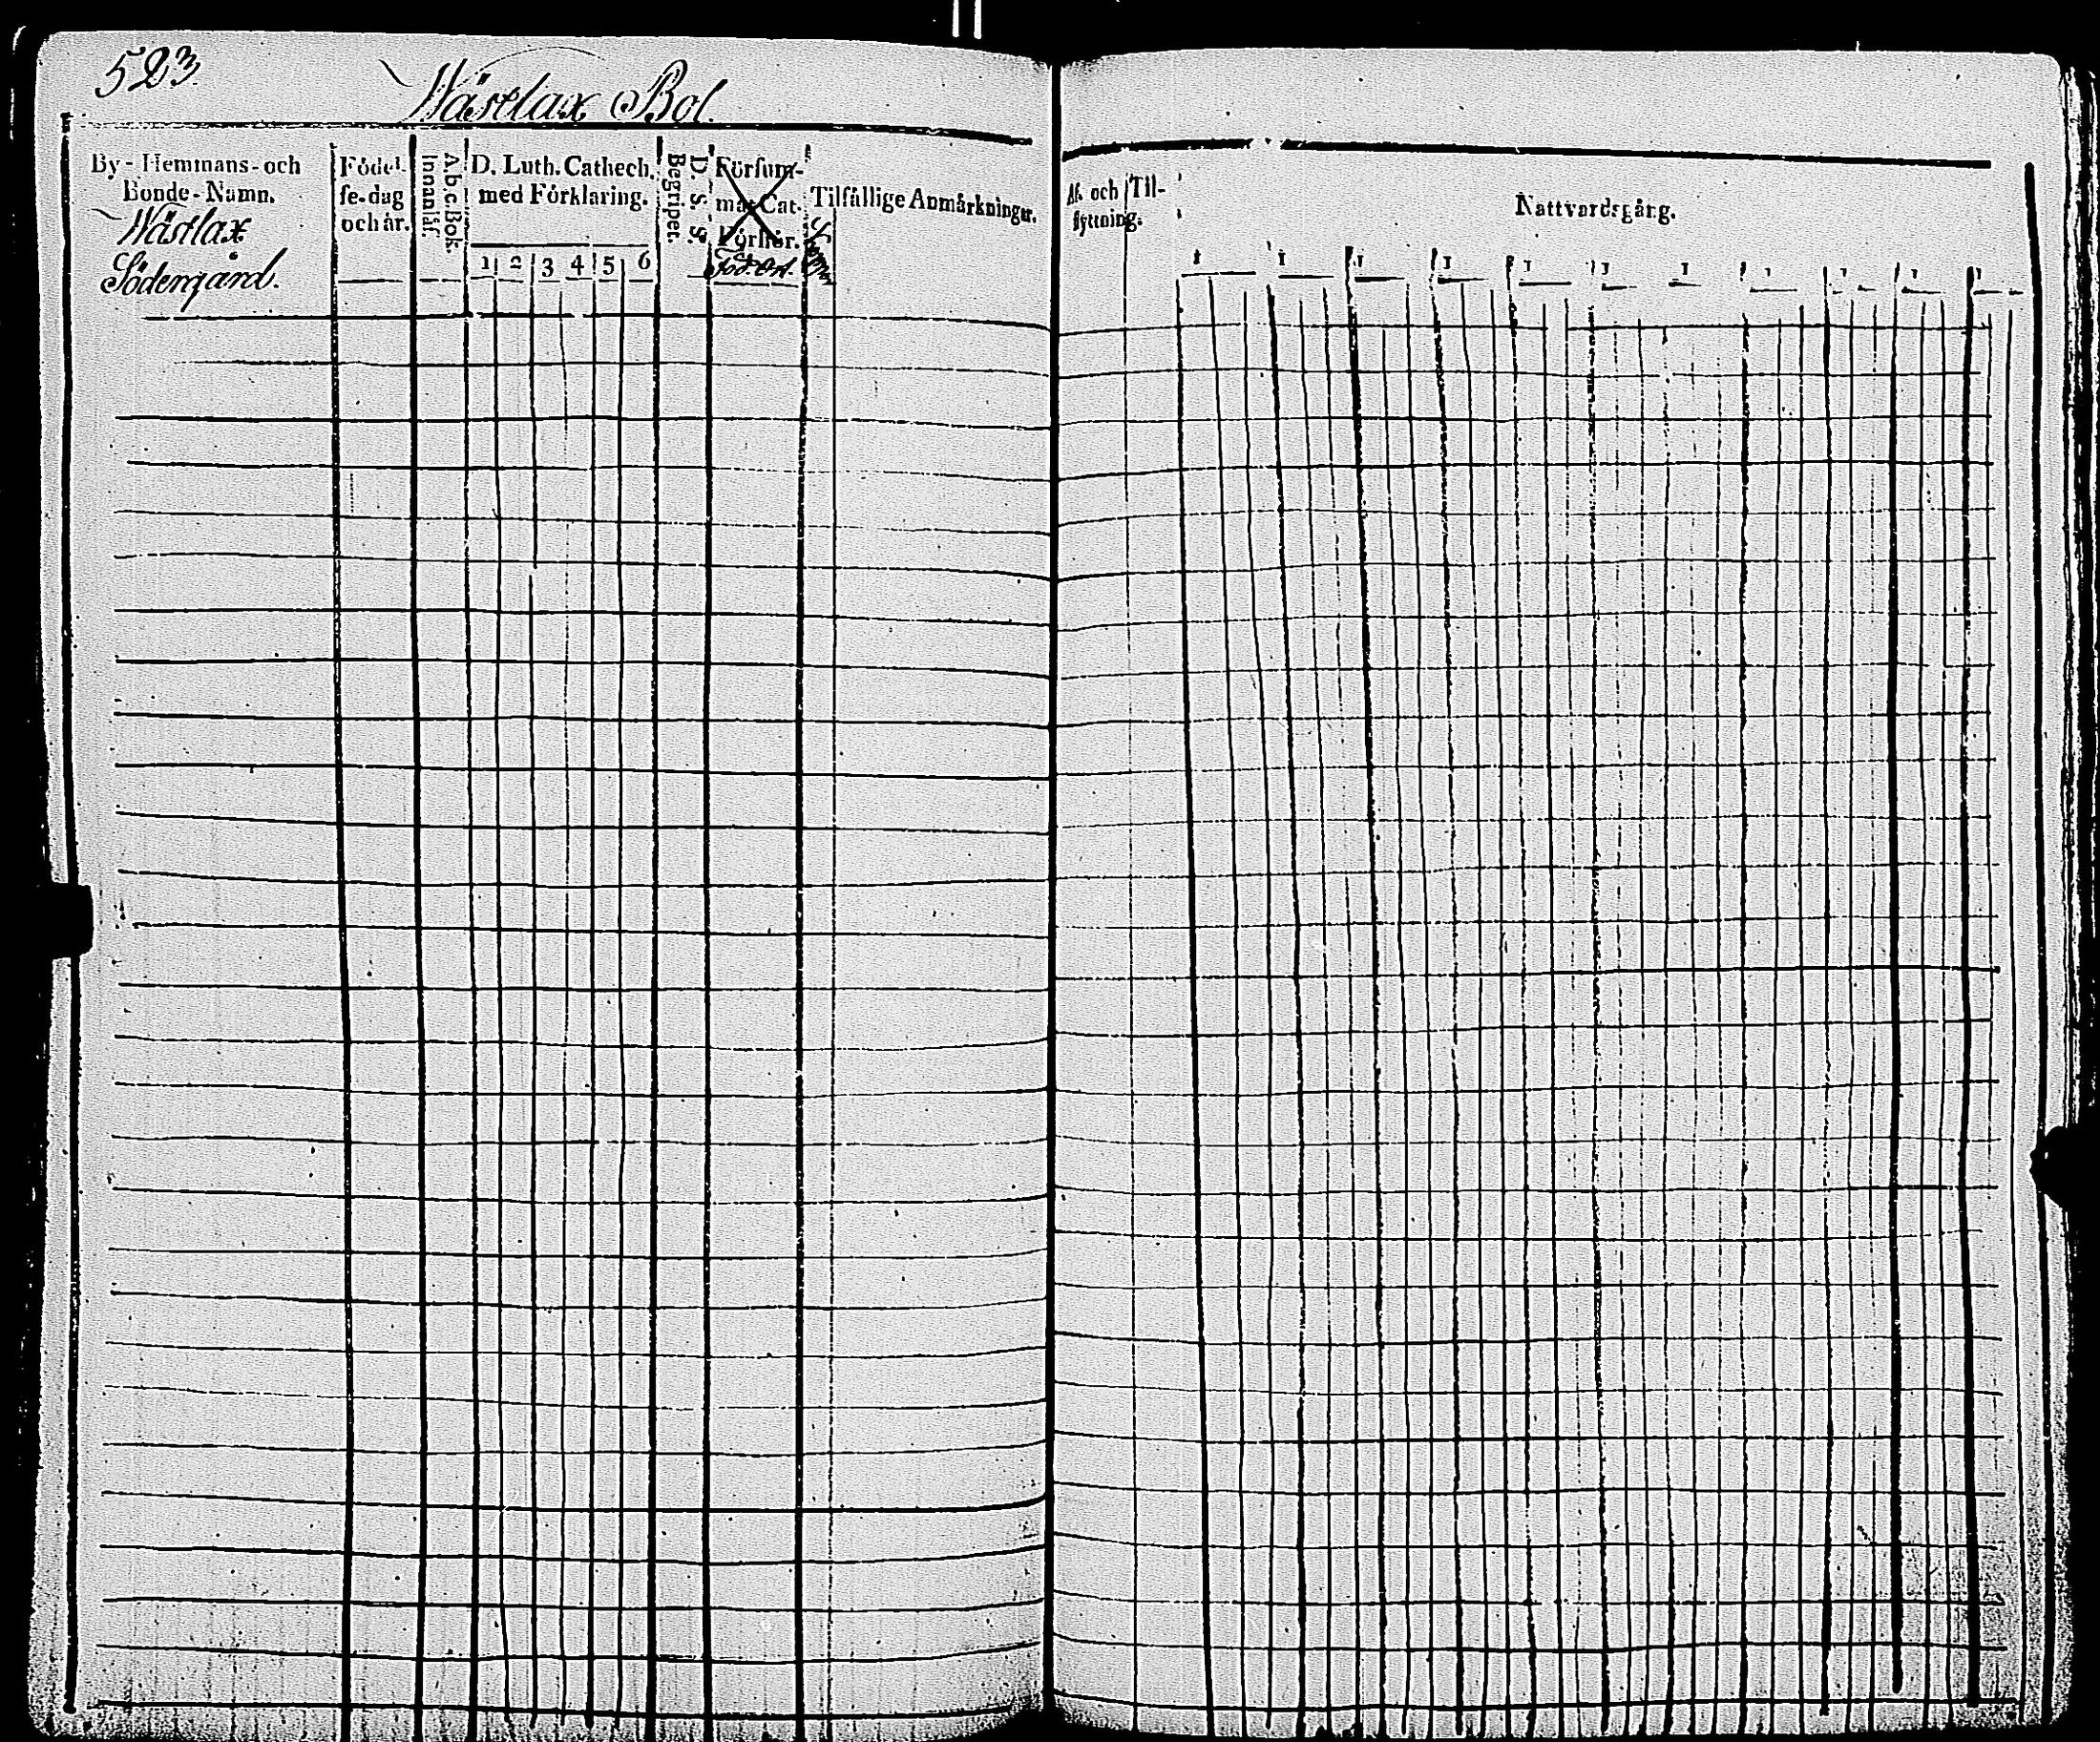 523
Wästlax Bol.
By-Hemmans-och
Bonde-Namn.
Wästlax
Södergård.
Födel-
se-dag
och år.
A.b.c.Bok.
Innanläs.
D. Luth. Cathech.
med Förklaring.
1 2 3 4 5 6
D. S. S.
Begripet.
Försum-
mat Cat.
Förhör.
Föd. Ort.
Tilfällige Anmärkningar.
Af- och Til-
flyttning.
Nattvardsgång.
1 1 1 1 1 1 1 1 1 1 1